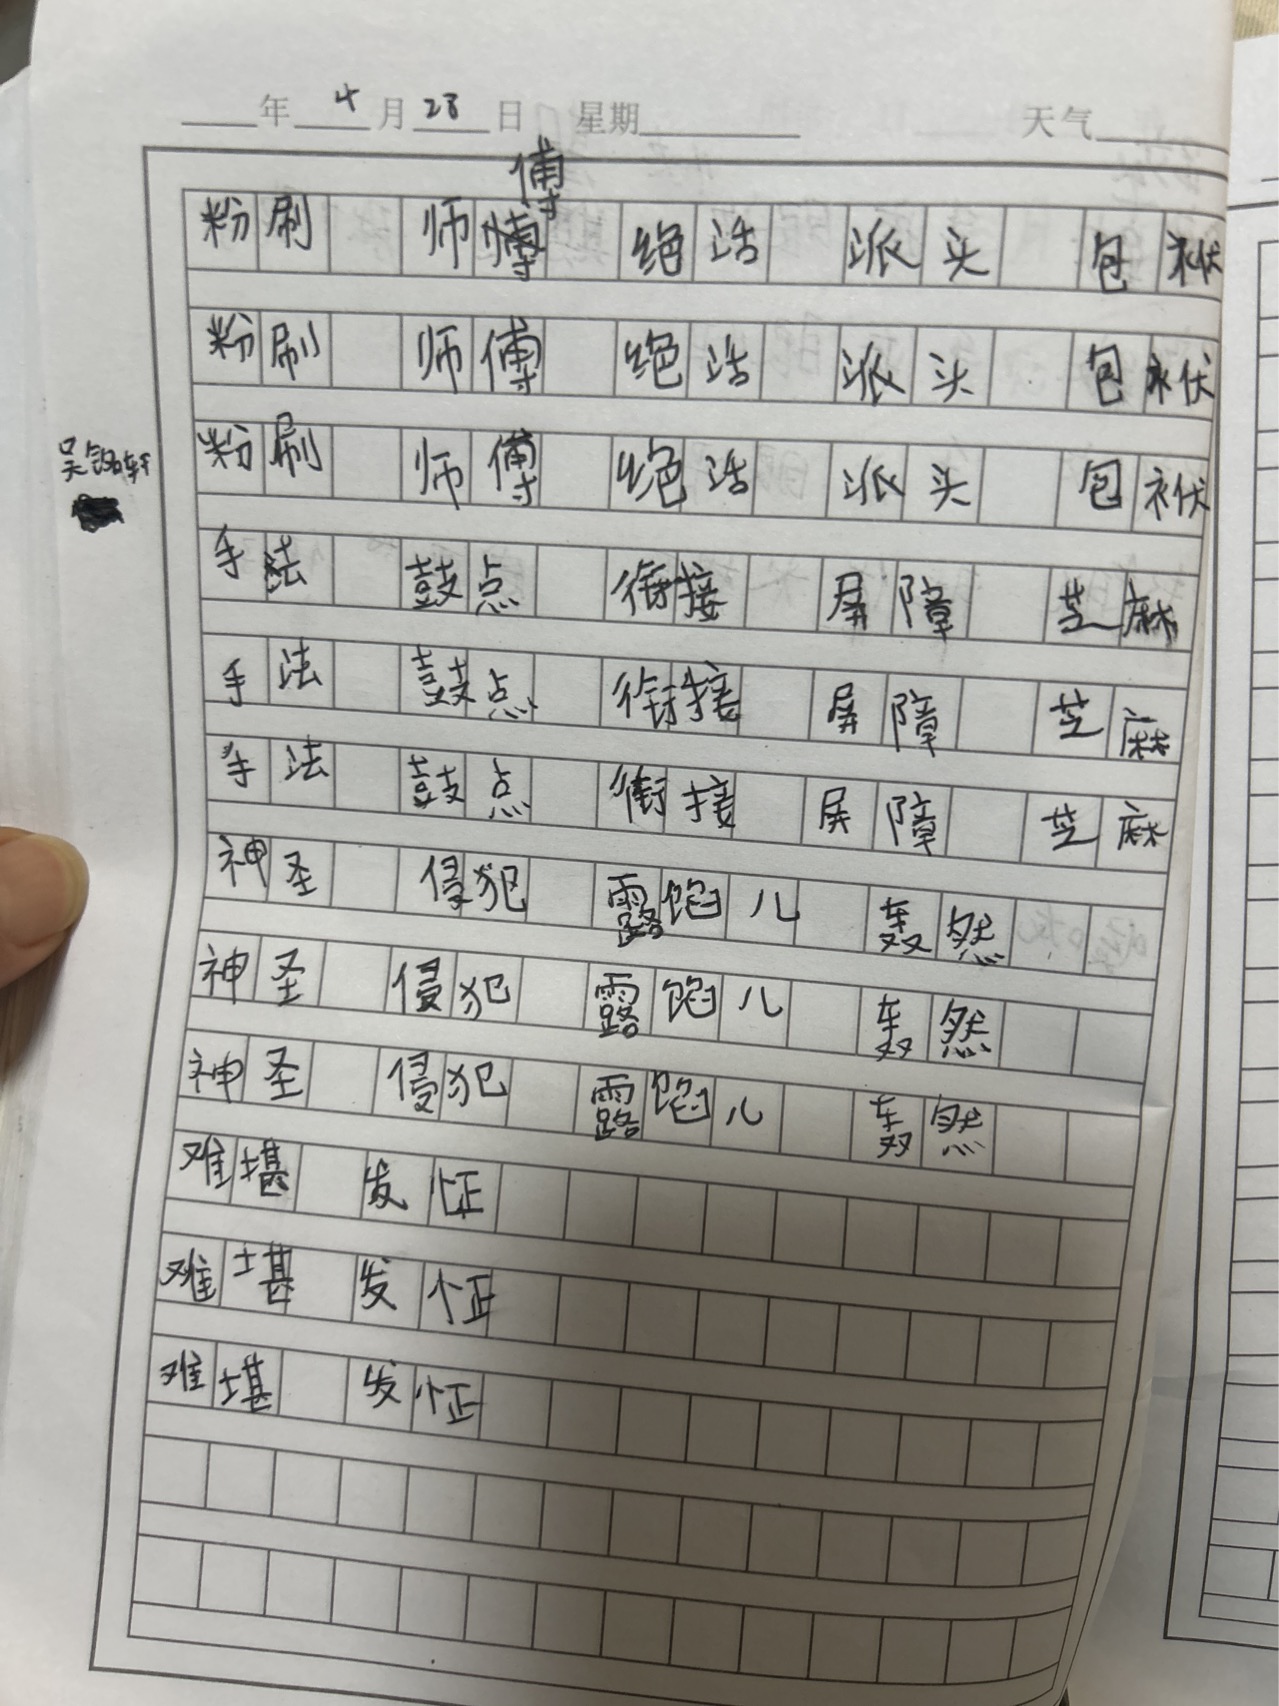 年 4 月 28 日 星期 天气
傅
粉刷 师傅 绝活 派头 包袱
粉刷 师傅 绝活 派头 包袱
吴铭轩
粉刷 师傅 绝活 派头 包袱
手法 鼓点 衔接 屏障 芝麻
手法 鼓点 衔接 屏障 芝麻
手法 鼓点 衔接 屏障 芝麻
神圣 侵犯 露馅儿 轰然
神圣 侵犯 露馅儿 轰然
神圣 侵犯 露馅儿 轰然
难堪 发怔
难堪 发怔
难堪 发怔